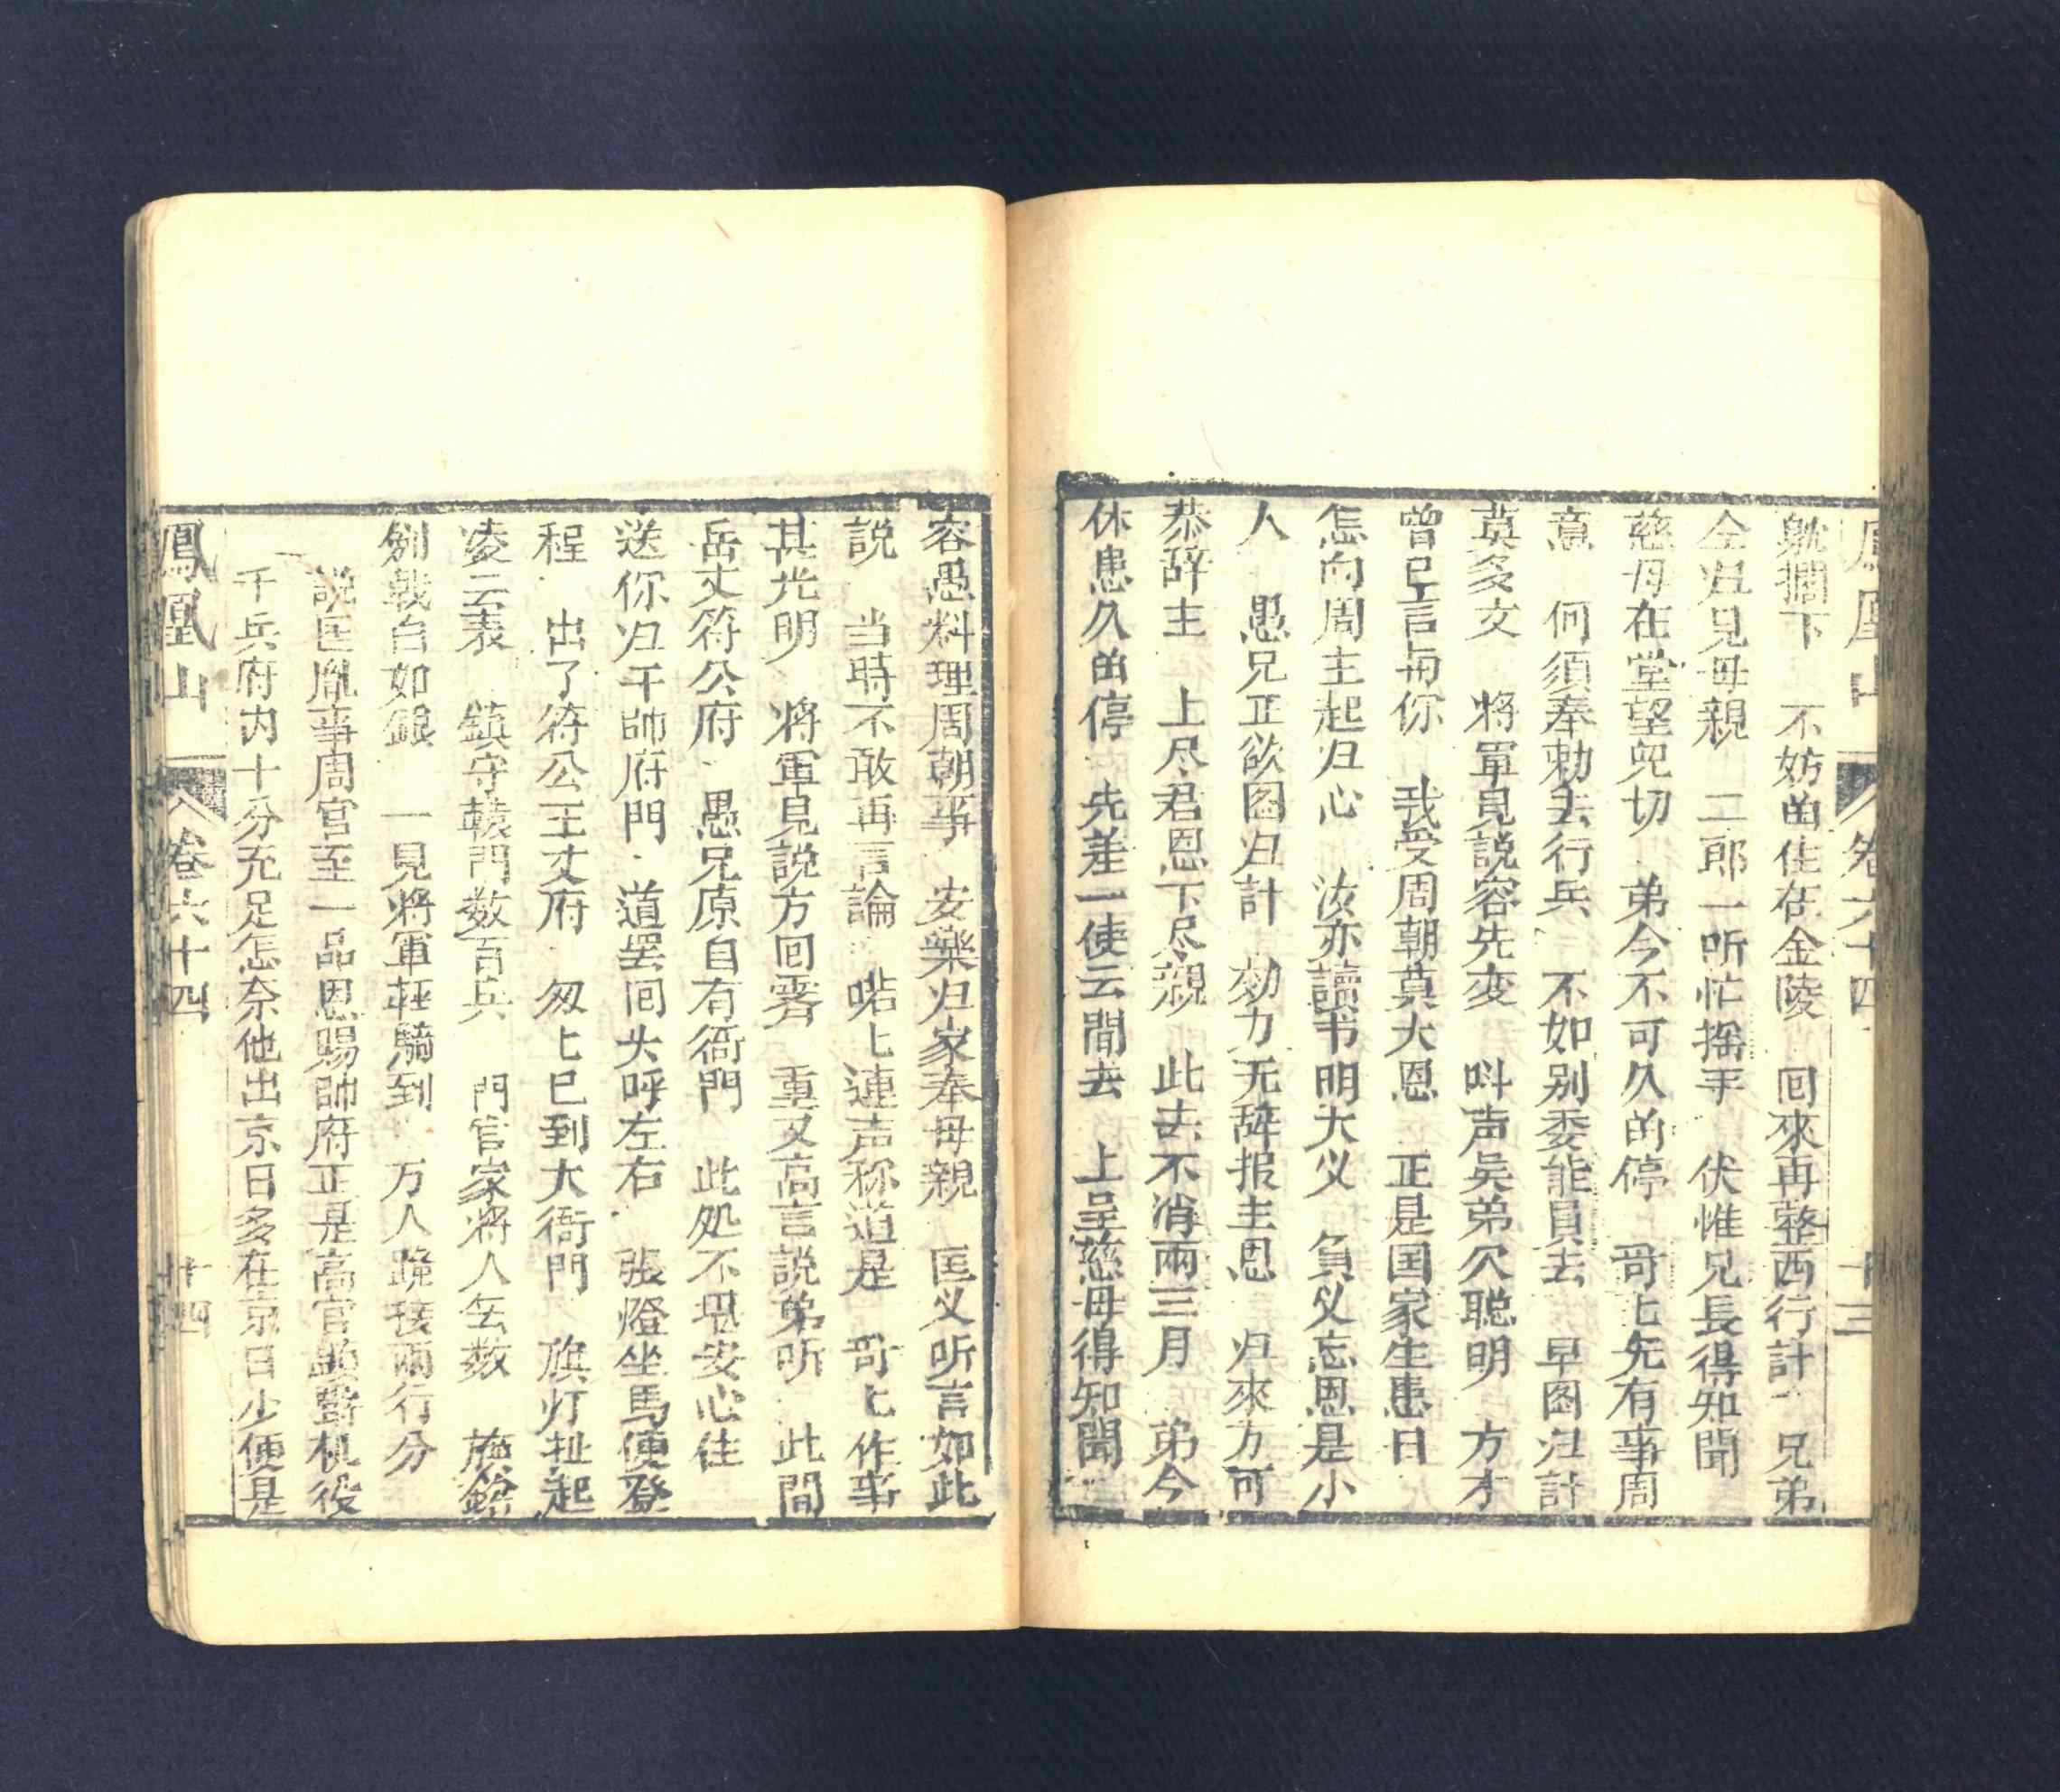 鳳凰山 卷六十四 十三
躭擱下 不妨畄住在金陵 囘來再整西行計 兄弟
仝归見母親 二郎一听忙摇手 伏惟兄長得知聞
慈母在堂望児切 弟今不可久畄停 哥匕先有事周
意 何須奉勅去行兵 不如别委能員去 早图归計
莫多文 将軍見説容先変 呌声吴弟欠聪明 方才
曾已言与你 我受周朝莫大恩 正是国家生患日
怎向周主起归心 汝亦讀书明大义 負义忘恩是小
人 愚兄正欲图归計 効力无辞报主恩 归來方可
恭辞主 上尽君恩下尽親 此去不消兩三月 弟今
休患久畄停 先差一使云間去 上呈慈母得知聞
容愚料理周朝事 安樂归家奉母親 匡义听言如此
説 当時不敢再言論 喏匕連声称道是 哥匕作事
甚光明 将軍見説方囘霽 重又高言説弟听 此間
岳丈符公府 愚兄原自有衙門 此処不思安心住
送你归干帥府門 道罢囘头呼左右 張燈坐馬便登
程 出了符公王丈府 匆匕已到大衙門 旗灯扯起
凌云表 鎮守轅門数百兵 門官家将人无数 旒
戟白如銀 一見将軍輕騎到 万人跪接兩行分
説匡胤事周官至一品恩赐帥府正是高官顕爵机役
千兵府内十分充足怎奈他出京日多在京日少便是
鳳凰山 卷六十四 十四